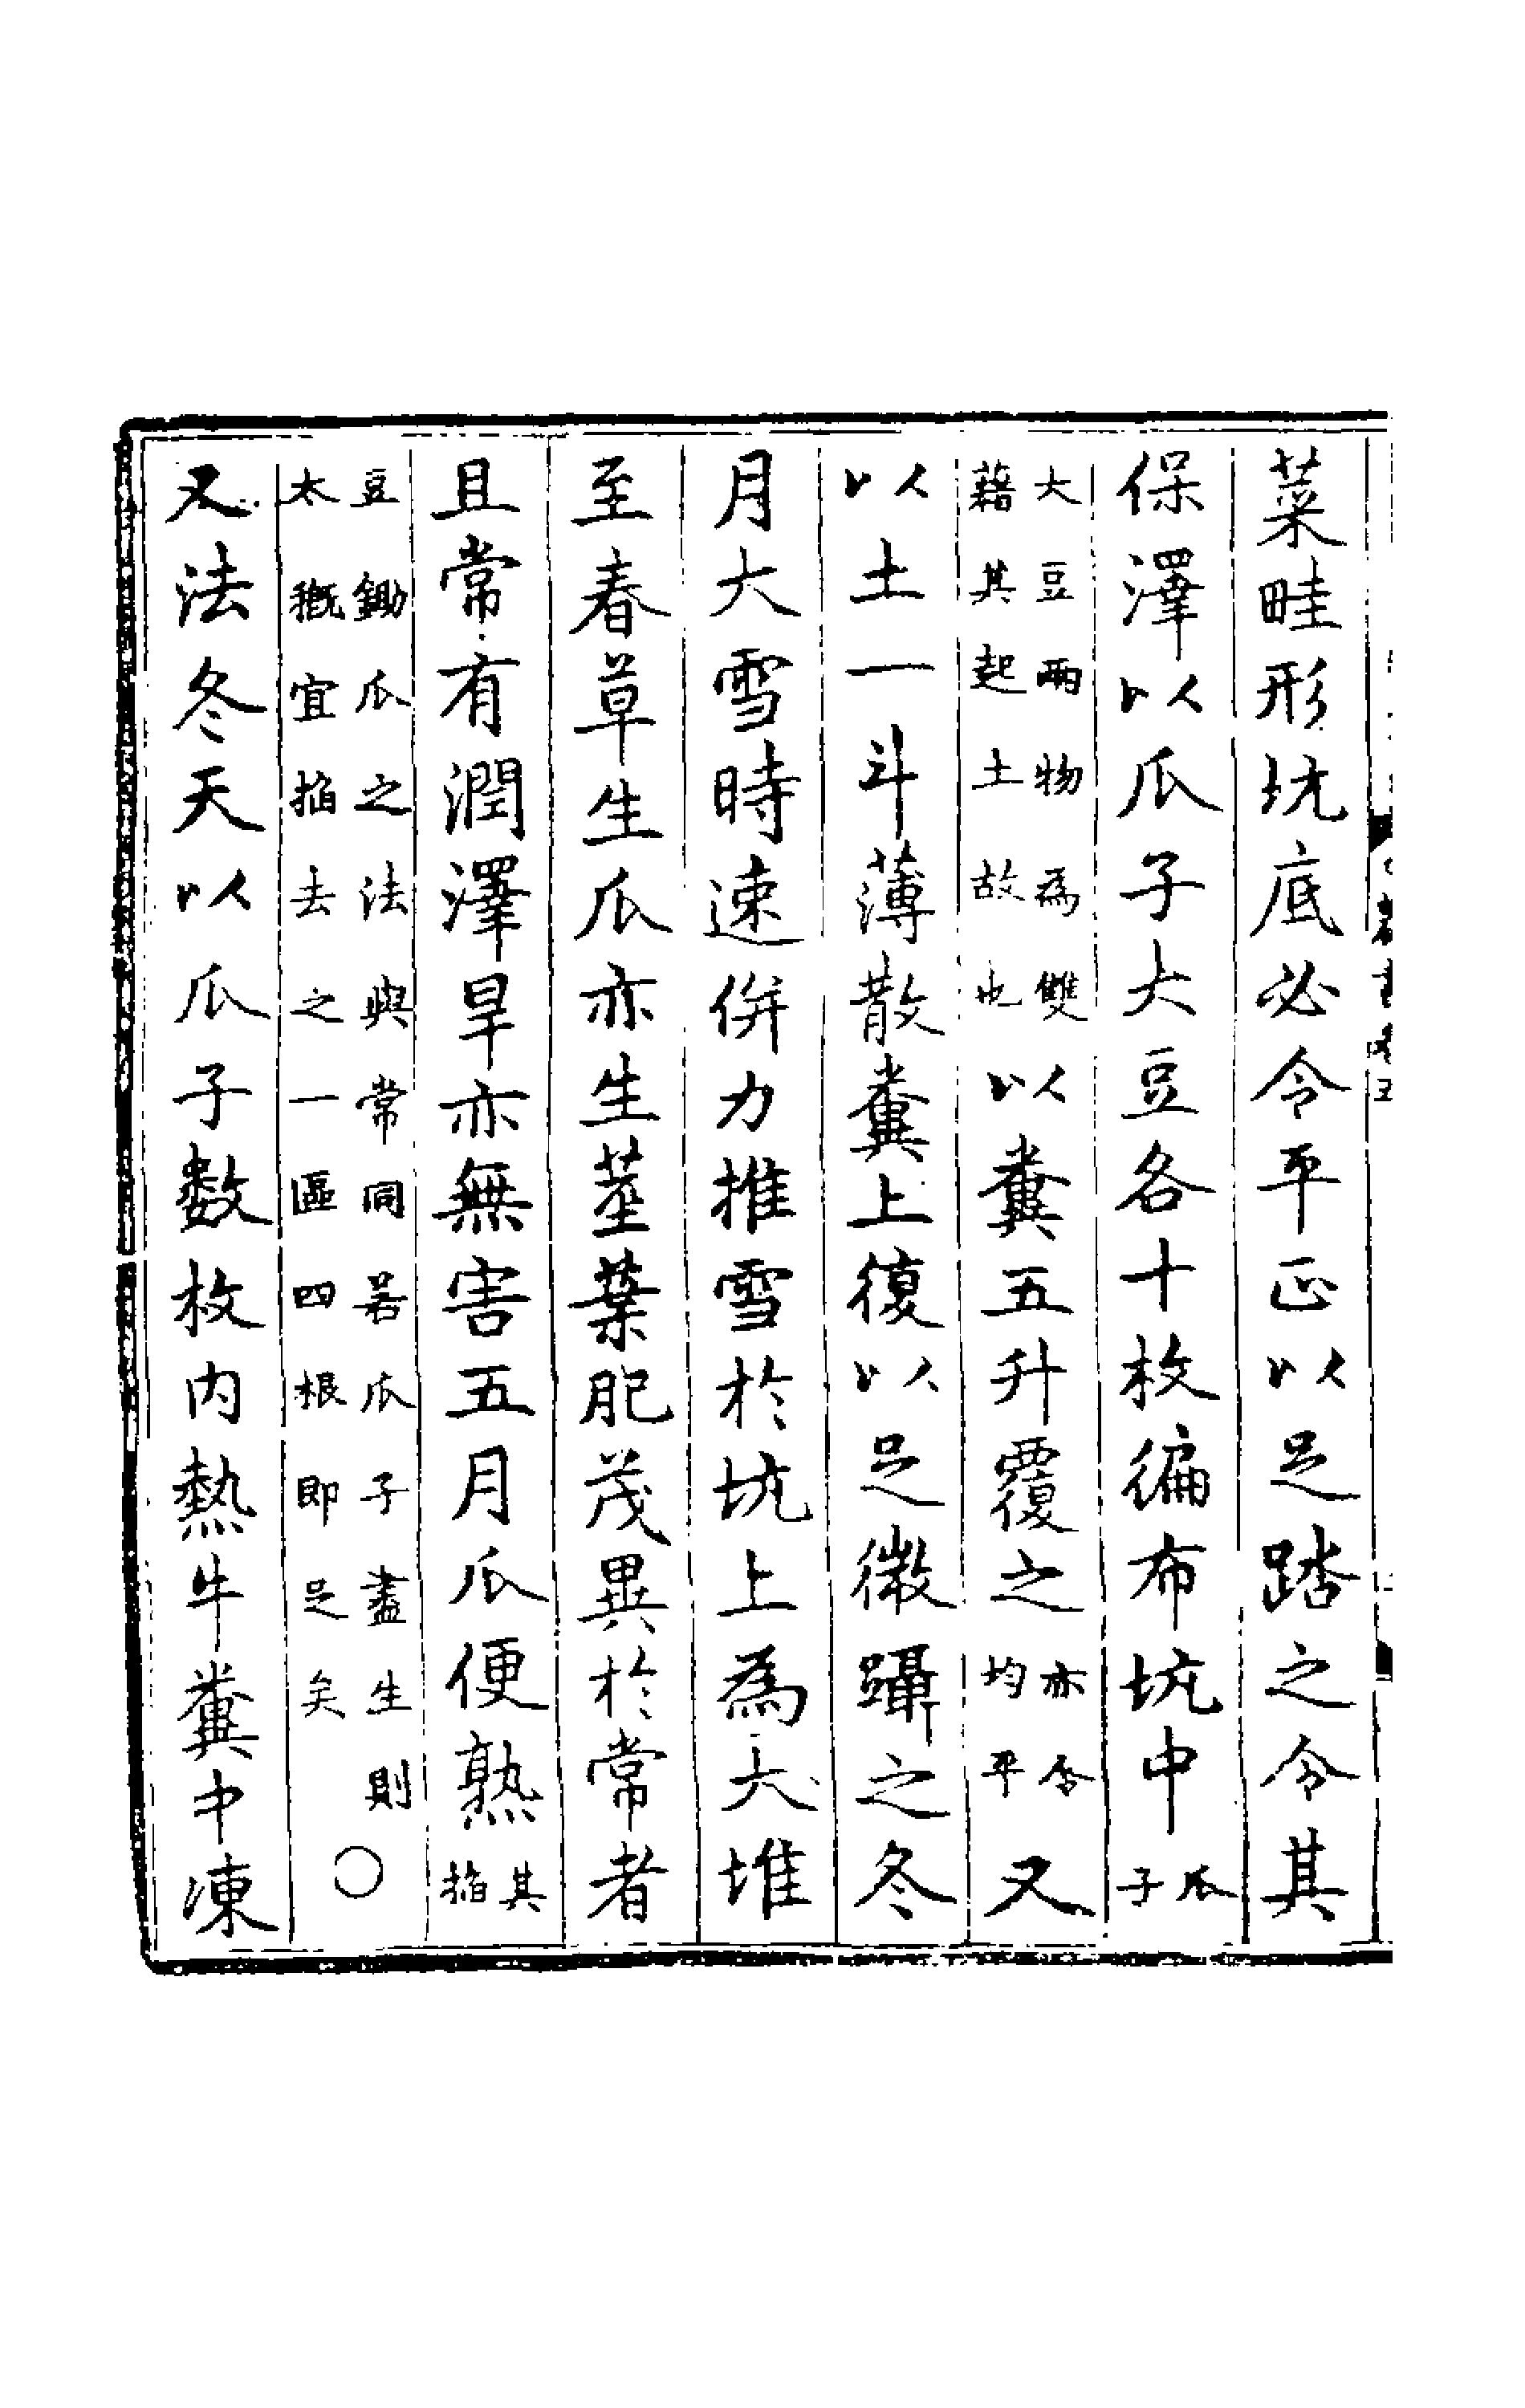 菜畦形坑底必令平正以足踏之令其
保澤以瓜子大豆各十枚徧布坑中瓜子
大豆兩物為雙
藉其起土故也以糞五升覆之亦令均平又
以土一斗薄散糞上復以足微躡之冬
月大雪時速併力推雪於坑上為大堆
至春草生瓜亦生莖葉肥茂異於常者
且常有潤澤旱亦無害五月瓜便熟其掐
豆鋤瓜之法與常同若瓜子盡生則
太穊宜掐去之一區四根即足矣○
又法冬天以瓜子数枚内熱牛糞中凍